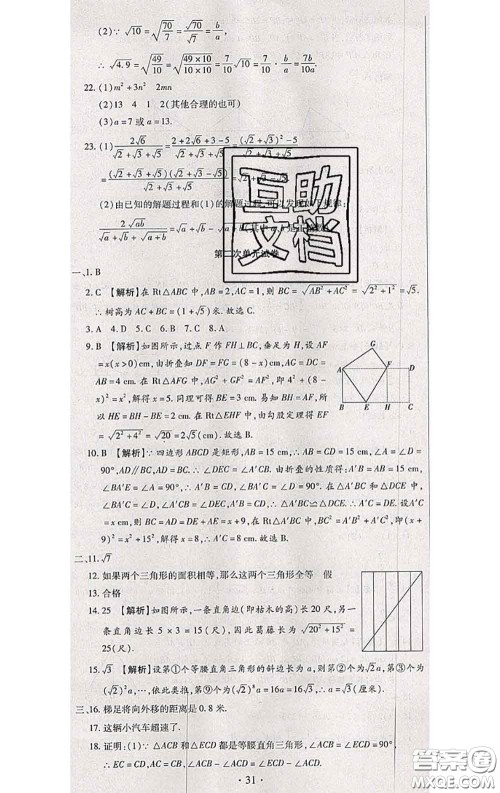 (2)∵√10=√(70/7)=√70/√7=b/a,
∴√4.9=√(49/10)=√(49×10)/√(10×10)=7/10√10=7/10·b/a=7b/10a.
22.(1)m²+3n² 2mn
(2)13 4 1 2(其他合理的也可)
(3)a=7或a=13.
23.(1)2√6/(√2+√3+√5)=(2+2√6+3-5)/(√2+√3+√5)=((√2+√3)²-5)/(√2+√3+√5)
(2)由已知的解题过程和(1)的解题过程,可以发现
2√ab/
互助文档
一、1.B
2.C 【解析】在Rt△ABC中,AB=2,AC=1,则BC=√(AB²+AC²)=√(2²+1²)=√5.
∴树高为AC+BC=(1+√5)米.故选C.
3.A 4.D 5.C 6.B 7.C 8.A
9.B 【解析】如图所示,过点F作FH⊥BC,垂足为H,设AF
=x(x>0)cm,由折叠知DF=FG=(8-x)cm,AG=CD=
AB=4 cm.在Rt△AFG中,AG²+GF²=AF²,即4²+(8-
x)²=x²,解得x=5.易知BH=AF=5 cm,BE=3 cm,所
以HE=BH-BE=2 cm.在Rt△EHF中,由勾股定理得EF
=√(2²+4²)=√20=2√5(cm).故选B.
A G F D B E H C
10.B 【解析】∵四边形ABCD是矩形,AB=15 cm,∴∠A=∠D=
90°,AD∥BC,AB=CD.∴∠DEC=∠A'CB.由折叠的性质得:A'B=AB=15 cm,
∠BA'E=∠A=90°,∴A'B=CD,∠BA'C=∠D=90°.在△A'BC和△DCE中,
∠BA'C=∠D,∠A'CB=∠DEC,A'B=CD,∴△A'BC≌△DCE.∴A'C=DE.设A'C
=x cm,则BC=AD=DE+AE=x+9,在Rt△A'BC中,BC²=A'B²+A'C²,即(x+
9)²=x²+15²,解得x=8.∴A'C=8 cm.故选B.
二、11.√7
12.如果两个三角形的面积相等,那么这两个三角形全等 假
13.合格
14.25 【解析】如图所示,一条直角边(即枯木的高)长20尺,另
一条直角边长5×3=15(尺),因此葛藤长为√(20²+15²)=
25(尺).
15.√3 【解析】设第①个等腰直角三角形的斜边长为a,则第②个为√2a,第③个为
(√2)²a…依此类推,第⑨个为(√2)⁸a=16a=16√3,∴a=√3.
三、16.梯足将向外移的距离是0.8米.
17.这辆小汽车超速了.
18.证明:(1)∵△ACB和△ECD都是等腰直角三角形,∴∠ACB=∠ECD=90°,
∴EC=CD,AC=BC,∠ACE=∠BCD=90°-∠ACD.
·31·